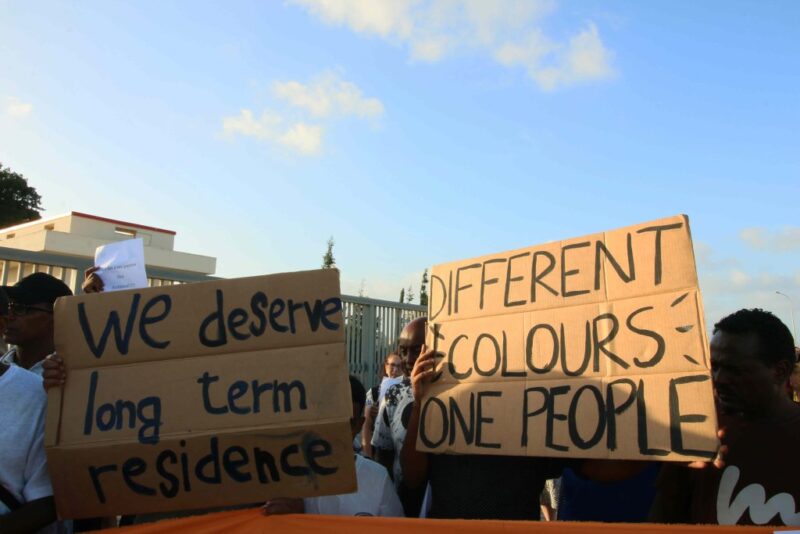 We deserve
long term
residence
DIFFERENT
COLOURS
ONE PEOPLE